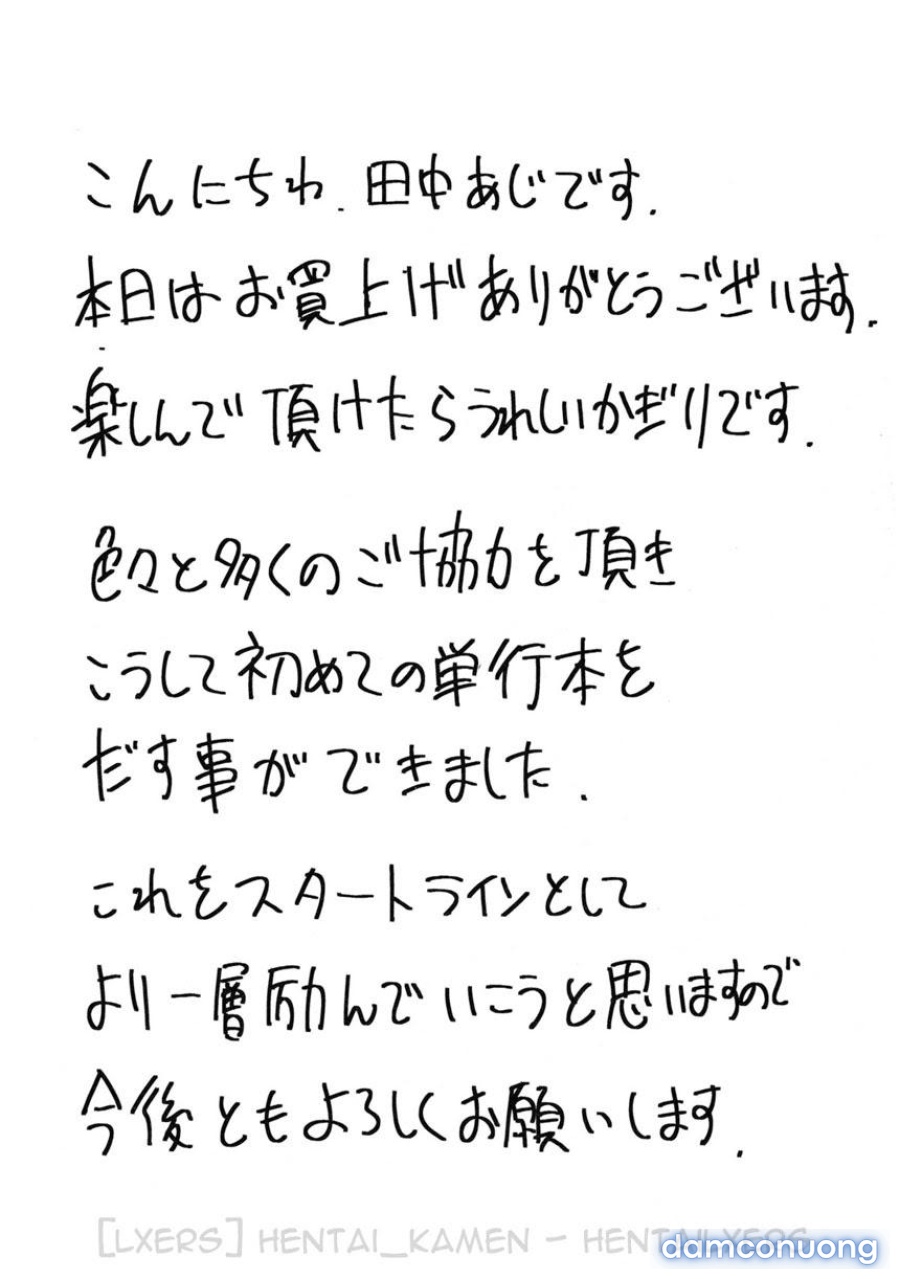 こんにちわ.田中あじです.
本日はお買上げありがとうございます.
楽しんで頂けたらうれしいかぎりです.
色々と多くのご協力を頂き
こうして初めての単行本を
だす事ができました.
これをスタートラインとして
より一層励んでいこうと思いますので
今後ともよろしくお願いします.
[LXERS] HENTAI_KAMEN - HENTAILXERS
damconuong